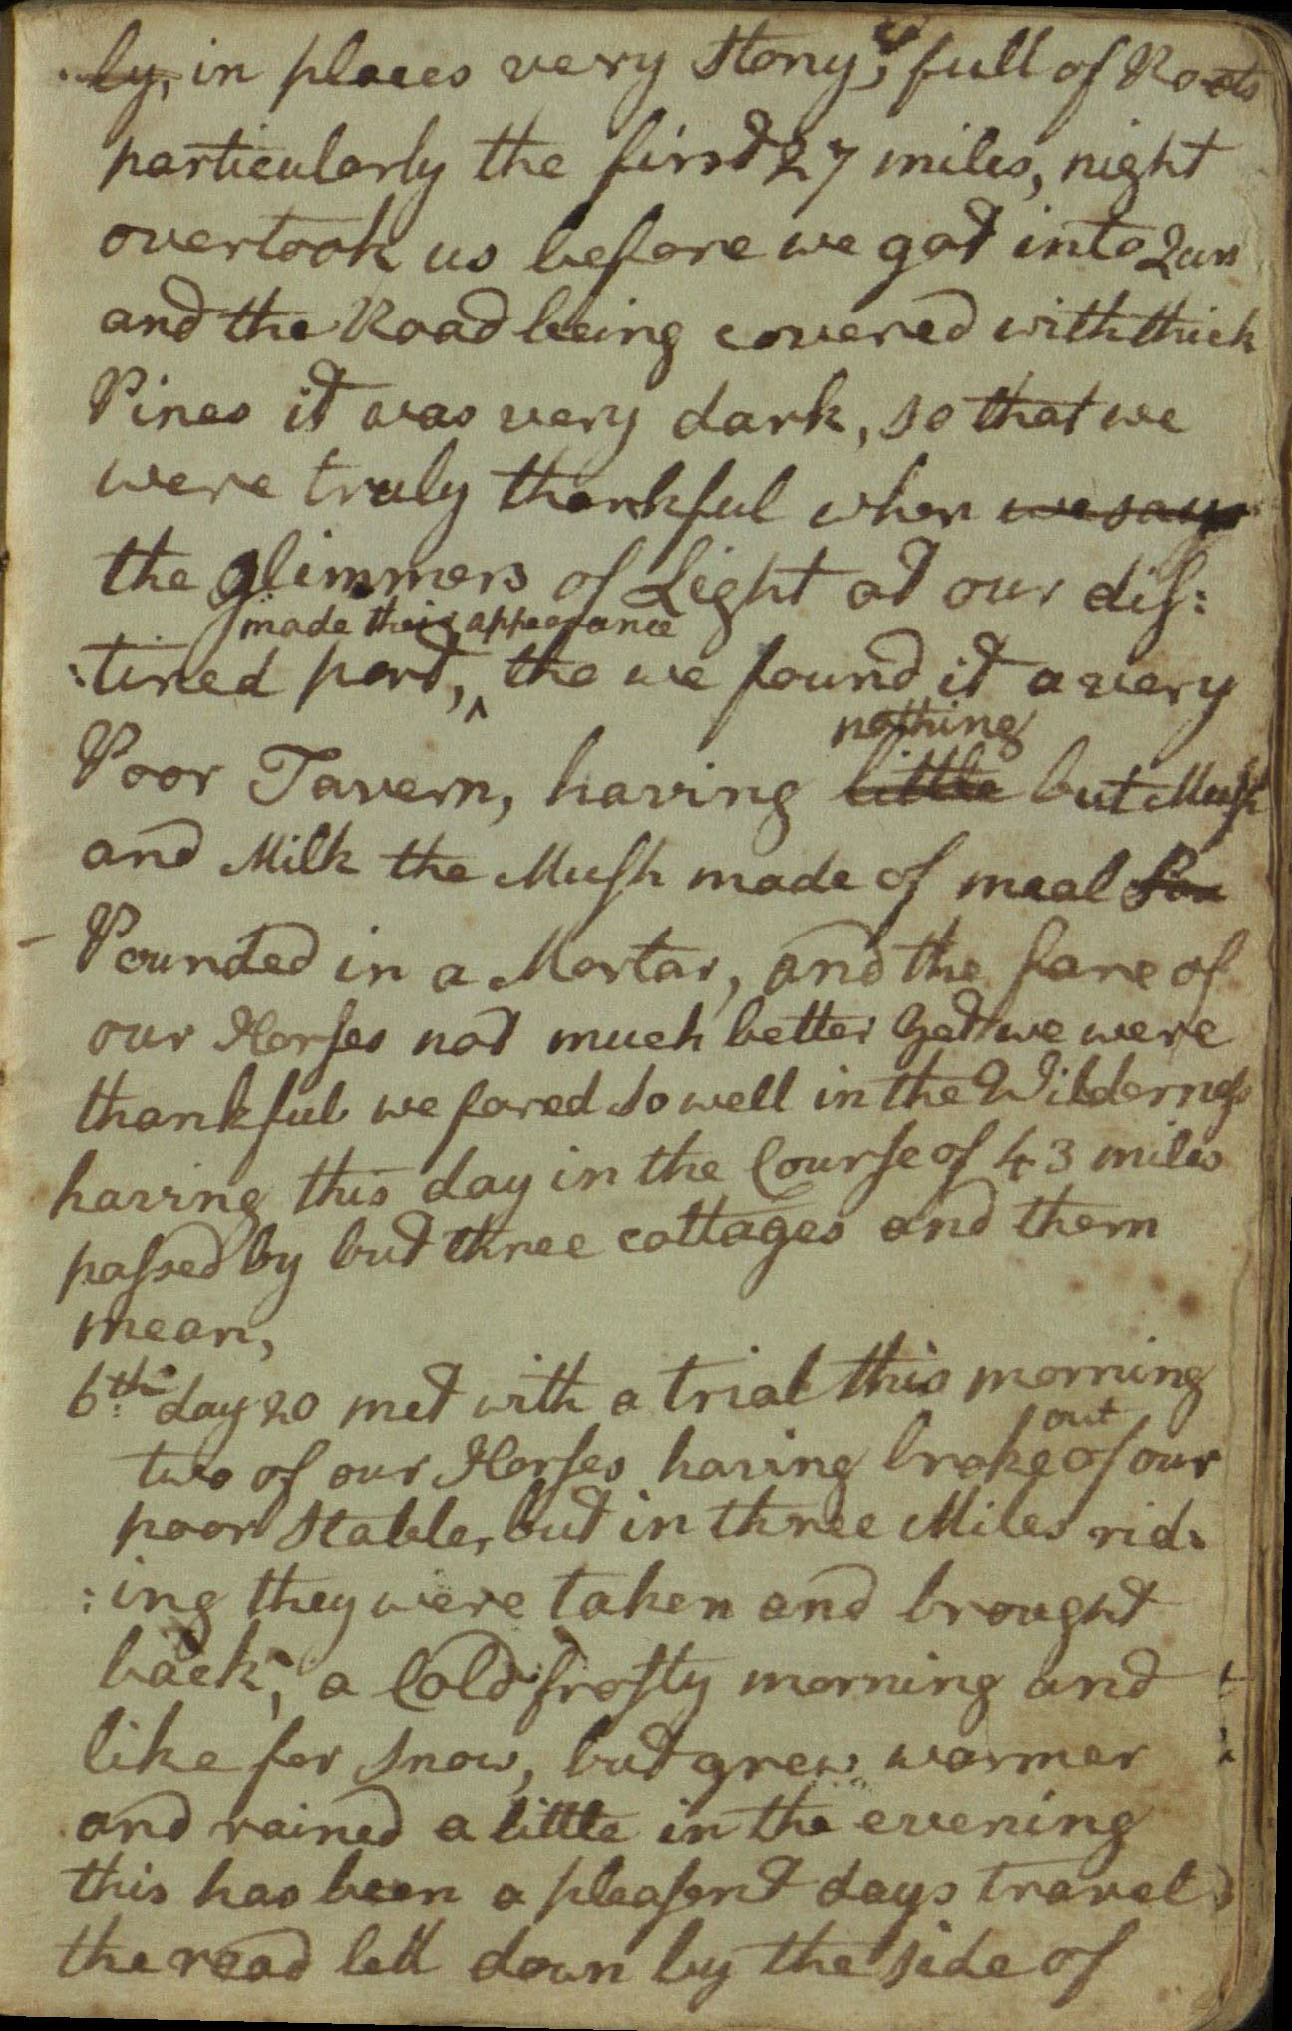 ly, in places very Stony & full of Roots
particularly the first 27 miles, night
overtook us before we got into Qurs
and the Road being covered with thick
Pines it was very dark, so that we
were truly thankful when we saw
the glimmers of Light at our dis:
made their appearance
:tined port, ^ tho we found it a very
nothing
Poor Tavern, having little but Mush
and Milk the Mush made of meal Pou
Pounded in a Mortar, and the fare of
our Horses not much better Yet we were
thankful we fared so well in the Wilderness
having this day in the Course of 43 miles
passed by but three cottages and them
mean,
6th day 20 met with a trial this morning
out
two of our Horses having broke of our
poor Stable, but in three Miles rid:
:ing they were taken and brought
back, a Cold frosty morning and
like for Snow, but grew warmer
and rained a little in the evening
this has been a pleasent days travel
the road led down by the side of